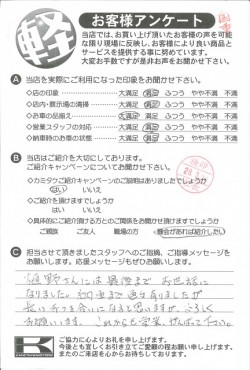 軽
お客様アンケート
当店では、お買い上げ頂いたお客様の声を可能
な限り現場に反映し、お客様により良い商品と
サービスを提供する事に努めています。
大変お手数ですが是非お声をお聞かせ下さい。
A 当店を実際にご利用になった印象をお聞かせ下さい。
◇店の印象 大満足 満足 ふつう やや不満 不満
◇店内・展示場の清掃 大満足 満足 ふつう やや不満 不満
◇お車の品揃え 大満足 満足 ふつう やや不満 不満
◇営業スタッフの対応 大満足 満足 ふつう やや不満 不満
◇納車時のお車の状態 大満足 満足 ふつう やや不満 不満
B 当店はご紹介を大切にしております。
ご紹介キャンペーンについてお聞かせ下さい。
◇カミタケご紹介キャンペーンのご説明はありましたでしょうか
はい いいえ
◇ご紹介を頂けますでしょうか
はい いいえ
◇具体的にご紹介頂ける方とのご関係をお聞かせ頂けますでしょうか
ご親族 ご友人 職場の方 機会があれば紹介したい
C 担当させて頂きましたスタッフへのご指摘、ご指導メッセージを
お願いします。応援メッセージもぜひお願いします。
さんには最後までお世話に
なりました。
長い
お願いします。これからも営業、がんばって下さい。
K
ご協力に心よりお礼を申し上げます。
今後とも宜しくお引き立てご愛顧の程お願い申し上げます。
またのご来店を心からお待ちしております。